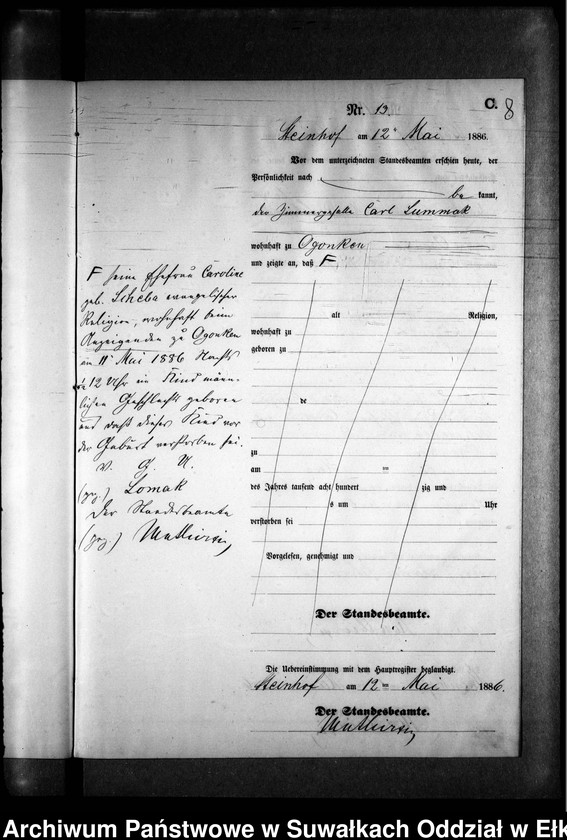 C.
8
Nr. 13.
Steinhof am 12ten Mai 1886.
Vor dem unterzeichneten Standesbeamten erschien heute, der
Persönlichkeit nach
be kannt,
der Zimmergeselle Carl Lummak
wohnhaft zu Ogonken
und zeigte an, daß F
F seine Ehefrau Caroline
geb. Scheba evangelischer
Religion, wohnhaft beim
Anzeigenden zu Ogonken
am 11ten Mai 1886 Nachts
12 Uhr ein Kind männ-
lichen Geschlechts geboren
und daß dieses Kind vor
der Geburt verstorben sei.
V. G. U.
(gez.) Lomak
Der Standesbeamte
(gez.)
alt Religion,
wohnhaft zu
geboren zu
de
zu
am ten
des Jahres tausend acht hundert zig und
s um Uhr
verstorben sei
Vorgelesen, genehmigt und
Der Standesbeamte.
Die Uebereinstimmung mit dem Hauptregister beglaubigt.
Steinhof am 12 ten Mai 1886.
Der Standesbeamte.
Archiwum Państwowe w Suwałkach Oddział w Ełk